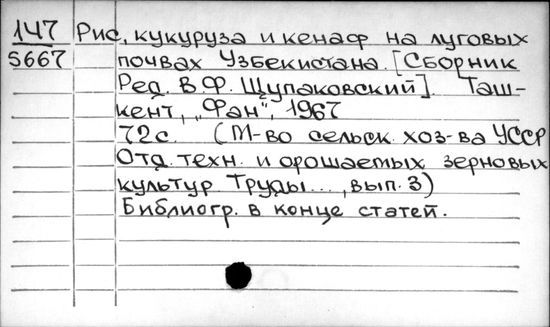 147 Рис, кукуруза и кенаф на луговых
5667 почвах Узбекистана. [Сборник
Ред. В.Ф. Щупаковский]. Таш-
кент, „Фан“, 1967
72с. (М-во сельск. хоз-ва УССР
Отд. техн. и орошаемых зерновых
культур Труды..., вып. 3)
Библиогр. в конце статей.